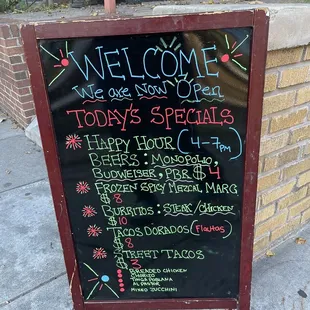 WELCOME
We are Now Open
TODAY'S SPECIALS
HAPPY HOUR (4-7pm)
BEERS: MONOPOLIO,
BUDWEISER, PBR $4
FROZEN SPICY MEZCAL MARG
$8
BURRITOS: STEAK/CHICKEN
$10
TACOS DORADOS (Flautas)
$8
STREET TACOS
$3
BREADED CHICKEN
CHORIZO
TINGA POBLANA
AL PASTOR
MIXED ZUCCHINI